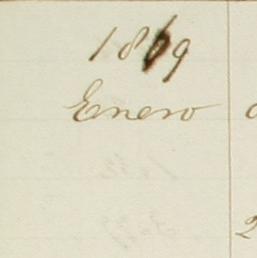 1869
Enero
2